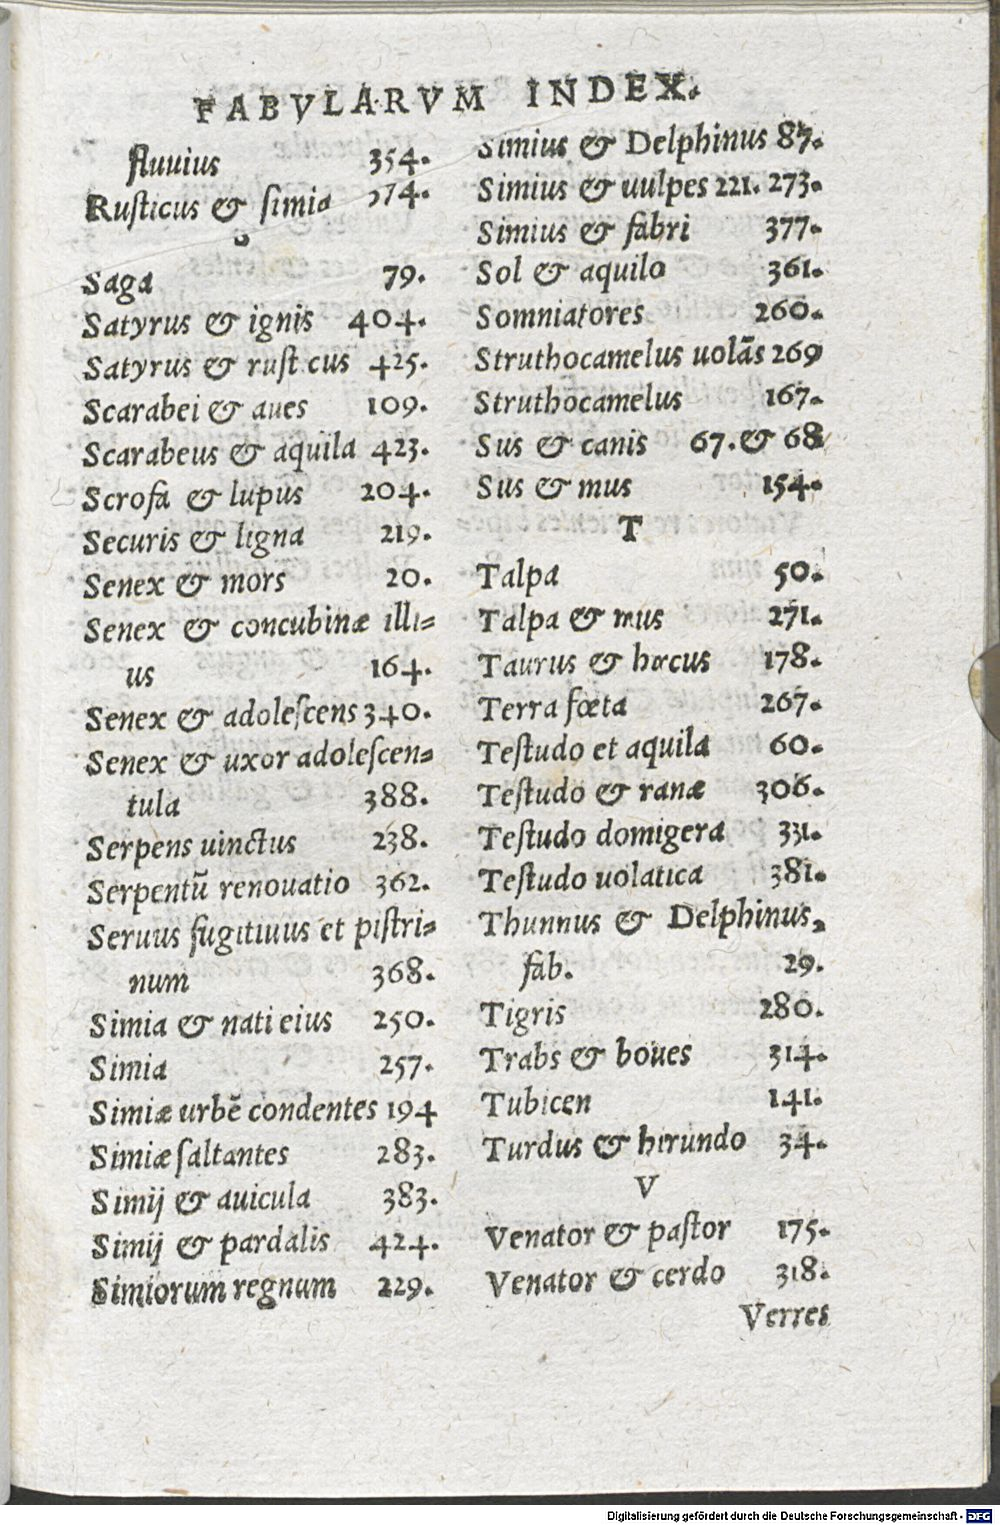 FABVLARVM INDEX.
fluuius 354.
Rusticus & simia 274.
S
Saga 79.
Satyrus & ignis 404.
Satyrus & rust cus 425.
Scarabei & aues 109.
Scarabeus & aquila 423.
Scrofa & lupus 204.
Securis & ligna 219.
Senex & mors 20.
Senex & concubinæ illi=
us 164.
Senex & adolescens 340.
Senex & uxor adolescen=
tula 388.
Serpens uinctus 238.
Serpentũ renouatio 362.
Seruus fugitiuus et pistri=
num 368.
Simia & nati eius 250.
Simia 257.
Simiæ urbẽ condentes 194
Simiæ saltantes 283.
Simij & auicula 383.
Simij & pardalis 424.
Simiorum regnum 229.
Simius & Delphinus 87.
Simius & uulpes 221. 273.
Simius & fabri 377.
Sol & aquilo 361.
Somniatores 260.
Struthocamelus uolãs 269
Struthocamelus 167.
Sus & canis 67. & 68
Sus & mus 154.
T
Talpa 50.
Talpa & mus 271.
Taurus & hircus 178.
Terra fœta 267.
Testudo et aquila 60.
Testudo & ranæ 306.
Testudo domigera 331.
Testudo uolatica 381.
Thunnus & Delphinus,
fab. 29.
Tigris 280.
Trabs & boues 314.
Tubicen 141.
Turdus & hirundo 34.
V
Venator & pastor 175.
Venator & cerdo 318.
Verres
Digitalisierung gefördert durch die Deutsche Forschungsgemeinschaft - DFG